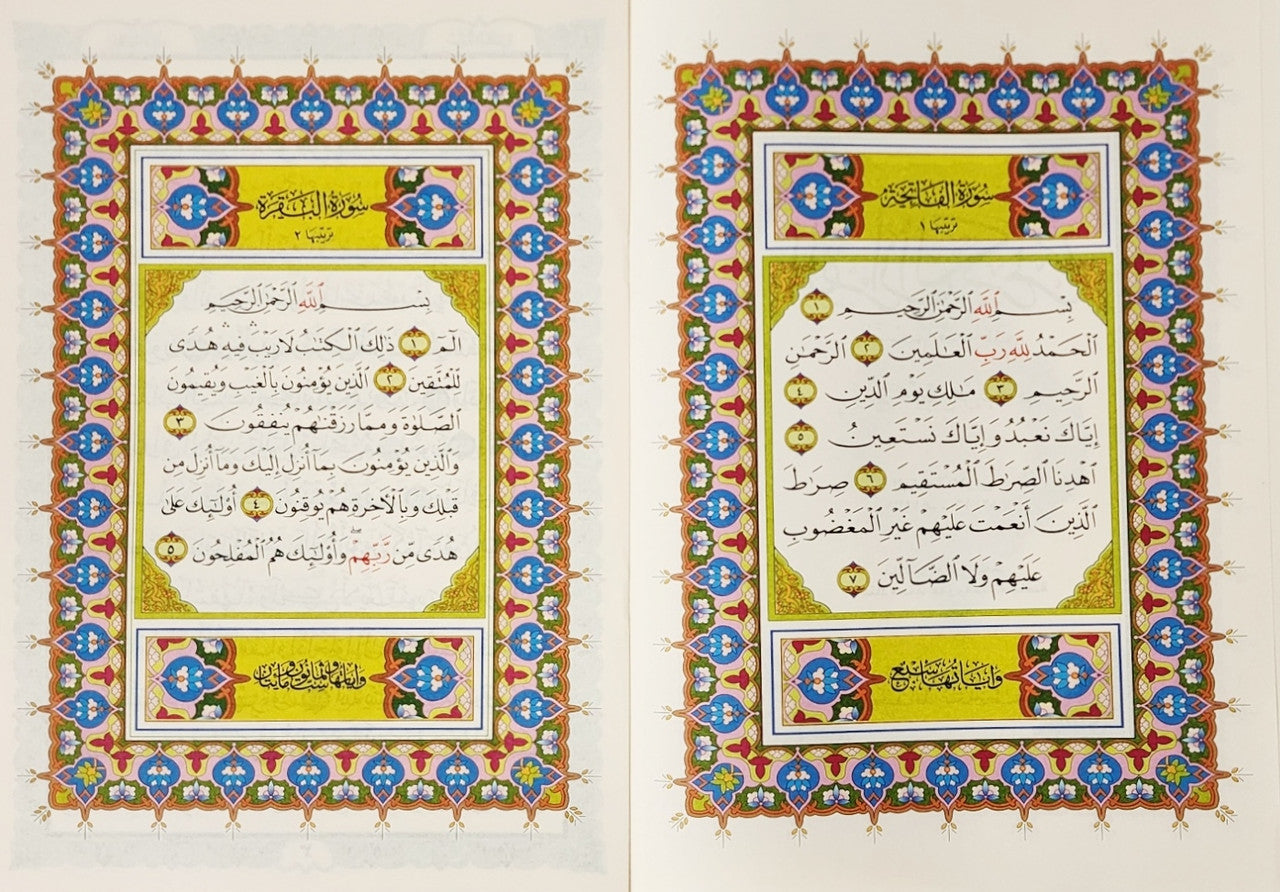 سُورَةُ الفَاتِحَةِ
ترتيبها ١
بِسْمِ ٱللَّهِ ٱلرَّحْمَٰنِ ٱلرَّحِيمِ ١
ٱلْحَمْدُ لِلَّهِ رَبِّ ٱلْعَٰلَمِينَ ٢ ٱلرَّحْمَٰنِ
ٱلرَّحِيمِ ٣ مَٰلِكِ يَوْمِ ٱلدِّينِ ٤
إِيَّاكَ نَعْبُدُ وَإِيَّاكَ نَسْتَعِينُ ٥
ٱهْدِنَا ٱلصِّرَٰطَ ٱلْمُسْتَقِيمَ ٦ صِرَٰطَ
ٱلَّذِينَ أَنْعَمْتَ عَلَيْهِمْ غَيْرِ ٱلْمَغْضُوبِ
عَلَيْهِمْ وَلَا ٱلضَّآلِّينَ ٧
وَآيَاتُهَا سَبْعٌ
سُورَةُ البَقَرَةِ
ترتيبها ٢
بِسْمِ ٱللَّهِ ٱلرَّحْمَٰنِ ٱلرَّحِيمِ
الٓمٓ ١ ذَٰلِكَ ٱلْكِتَٰبُ لَا رَيْبَ ۛ فِيهِ ۛ هُدًى
لِّلْمُتَّقِينَ ٢ ٱلَّذِينَ يُؤْمِنُونَ بِٱلْغَيْبِ وَيُقِيمُونَ
ٱلصَّلَوٰةَ وَمِمَّا رَزَقْنَٰهُمْ يُنفِقُونَ ٣
وَٱلَّذِينَ يُؤْمِنُونَ بِمَآ أُنزِلَ إِلَيْكَ وَمَآ أُنزِلَ مِن
قَبْلِكَ وَبِٱلْأَخِرَةِ هُمْ يُوقِنُونَ ٤ أُو۟لَٰٓئِكَ عَلَىٰ
هُدًى مِّن رَّبِّهِمْ ۖ وَأُو۟لَٰٓئِكَ هُمُ ٱلْمُفْلِحُونَ ٥
وَآيَاتُهَا سِتٌّ وَثَمَانُونَ وَمِائَتَانِ